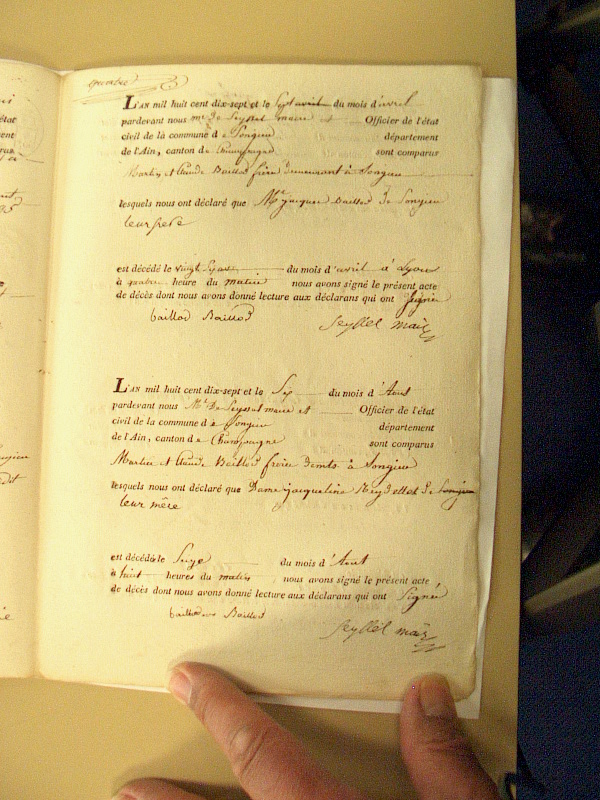 L'AN mil huit cent dix-sept et le Sept avril du mois d'avril
pardevant nous mr de Seyssel maire et Officier de l'état
civil de la commune de Songieu département
de l'Ain, canton de Champagne sont comparus
Martin et Claude Baillod frère demeurant à Songieu
lesquels nous ont déclaré que Mr jacques Baillod de Songieu
leur frere
est décédé le vingt du mois d'avril à Lyon
à quatre heure du matin nous avons signé le présent acte
de décès dont nous avons donné lecture aux déclarans qui ont Signés
baillod Baillod
Seyssel maire
L'AN mil huit cent dix-sept et le Six du mois d'Aout
pardevant nous Mr De Seyssel maire et Officier de l'état
civil de la commune de Songieu département
de l'Ain, canton de Champagne sont comparus
Martin et Claude Baillod freres demts à Songieu
lesquels nous ont déclaré que Dame jacqueline Reydellet de Songieu
leur mère
est décédé le du mois d'Aout
à huit heures du matin nous avons signé le présent acte
de décès dont nous avons donné lecture aux déclarans qui ont Signé
baillod Baillod
Seyssel maire